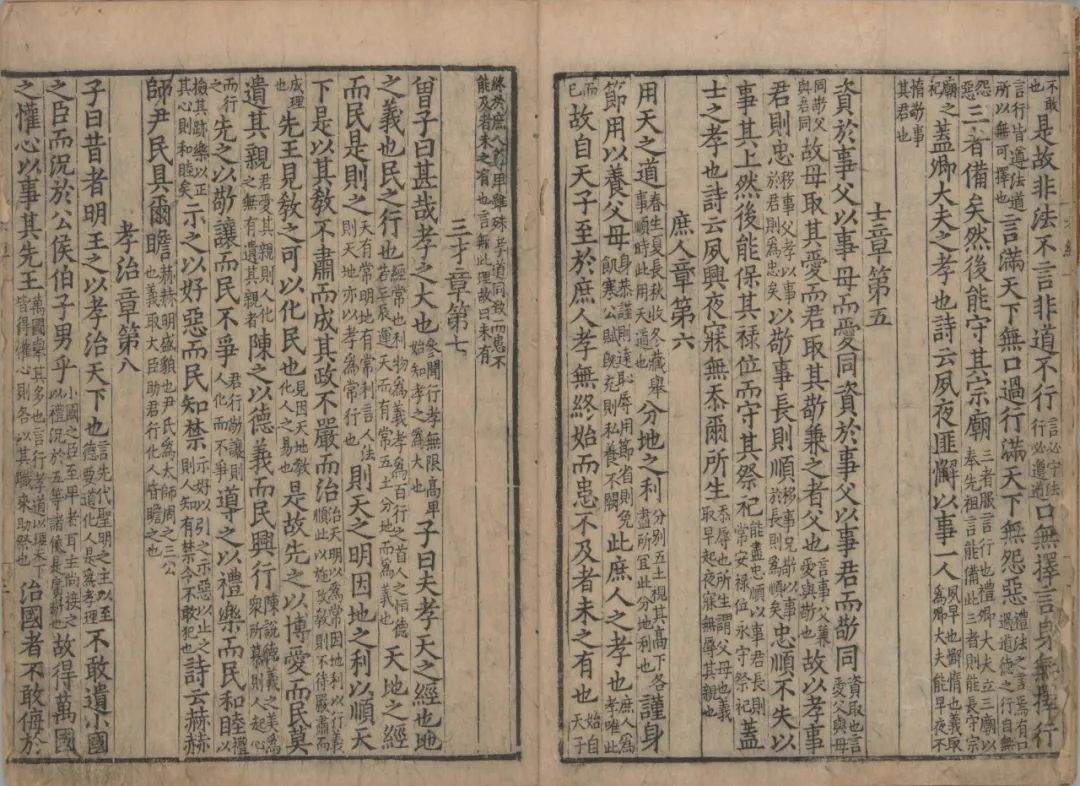 不敢也是故非法不言非道不行言必守法行必遵道口無擇言身無擇行
言行皆遵法道所以無可擇也言滿天下無口過行滿天下無怨惡禮法之言焉有口過道德之行自無
怨惡三者備矣然後能守其宗廟三者服言行也禮卿大夫立三廟以奉先祖言能備此三者則能長守宗
廟之祀蓋卿大夫之孝也詩云夙夜匪懈以事一人夙早也懈惰也義取為卿大夫能早夜不
惰敬事其君也
士章第五
資於事父以事母而愛同資於事父以事君而敬同資取也言愛父與母
同敬父與君同故母取其愛而君取其敬兼之者父也言事父兼愛與敬也故以孝事
君則忠移事父孝以事於君則為忠矣以敬事長則順移事兄敬以事於長則為順矣忠順不失以
事其上然後能保其祿位而守其祭祀能盡忠順以事君長則常安祿位永守祭祀蓋
士之孝也詩云夙興夜寐無忝爾所生忝辱也所生謂父母也義取早起夜寐無辱其親也
庶人章第六
用天之道春生夏長秋收冬藏舉事順時此用天道也分地之利分別五土視其高下各盡所宜此分地利也謹身
節用以養父母身恭謹則遠恥辱用節省則免飢寒公賦既充則私養不闕此庶人之孝也庶人為孝唯此
而已故自天子至於庶人孝無終始而患不及者未之有也始自天子
終於庶人尊卑雖殊孝道同致而患不能及者未之有也言無此理故曰未有
三才章第七
曾子曰甚哉孝之大也參聞行孝無限高卑始知孝之為大也子曰夫孝天之經也地
之義也民之行也經常也利物為義孝為百行之首人之恒德若三辰運天而有常五土分地而為義也天地之經
而民是則之天有常明地有常利言人法則天地亦以孝為常行也則天之明因地之利以順天
下是以其教不肅而成其政不嚴而治法天明以為常因地利以行義順此以施政教則不待嚴肅而
成理也先王見教之可以化民也見因天地教化人之易也是故先之以博愛而民莫
遺其親君愛其親則人化之無有遺其親者陳之以德義而民興行陳說德義之美為衆所慕則人起心
而行之先之以敬讓而民不爭君行敬讓則人化而不爭導之以禮樂而民和睦禮以
檢其跡樂以正其心則和睦矣示之以好惡而民知禁示好以引之示惡以止之則人知有禁令不敢犯也詩云赫赫
師尹民具爾瞻赫赫明盛貌也尹氏為太師周之三公也義取大臣助君行化人皆瞻之也
孝治章第八
子曰昔者明王之以孝治天下也言先代聖明之王以至德要道化人是為孝理不敢遺小國
之臣而況於公侯伯子男乎小國之臣至卑者耳主尚接之以禮況於五等諸侯是廣敬也故得萬國
之懽心以事其先王萬國舉其多也言行孝道以理天下皆得懽心則各以其職來助祭也治國者不敢侮於